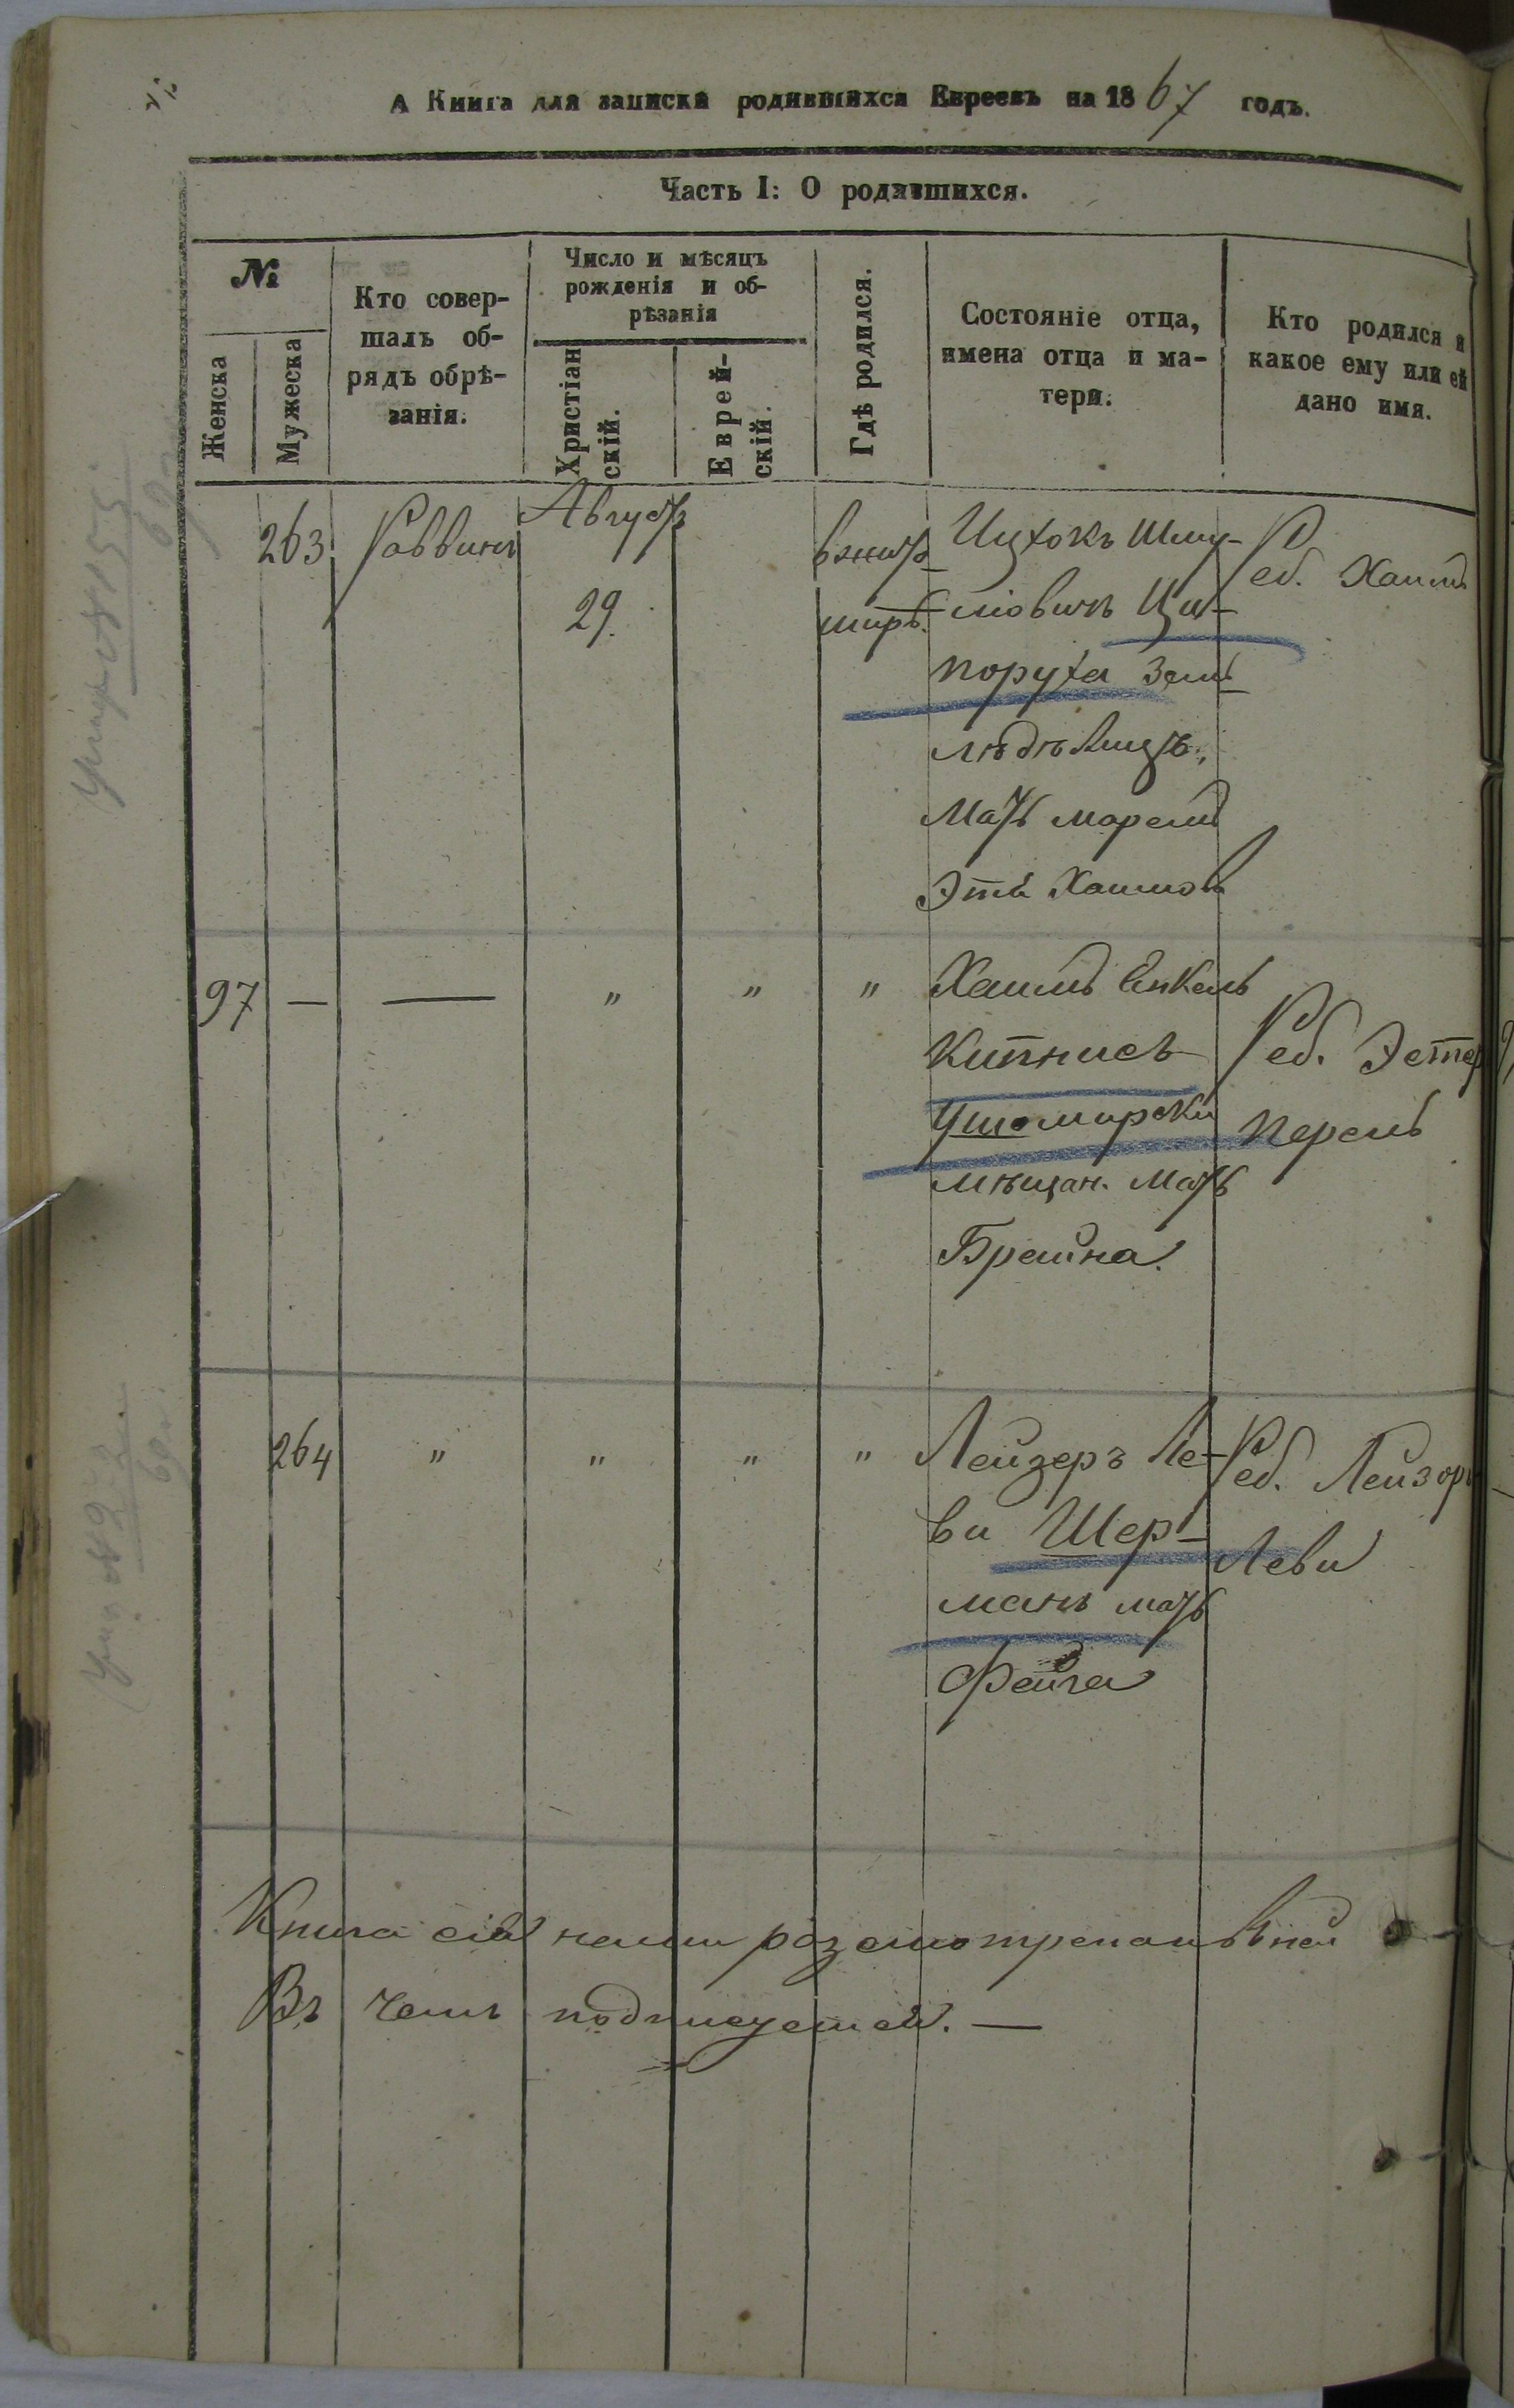 А Книга для записки родившихся Евреевъ на 1867 годъ.
Часть I: О родившихся.
№
Женска
Мужеска
Кто совер-
шалъ об-
рядъ обрѣ-
занія.
Число и мѣсяцъ
рожденія и об-
рѣзанія
Христіан
скій.
Еврей-
скій.
Гдѣ родился.
Состояніе отца,
имена отца и ма-
тери.
Кто родился и
какое ему или ей
дано имя.
263
Раввинъ
Августъ
29.
вжит-
миръ.
Ицхокъ Шму-
ліовичъ Ци-
поруха Земл
лѣдѣлицъ.,
Мать Марем
Эта Хаимов
Реб. Хаимъ
97 — — " " "
Хаимъ Енкель
Кипнисъ
Ушомирски
мѣщан. Мать
Браина.
Реб. Эстер
Перель
264 " " " "
Лейзеръ Ле-
ви Шер-
манъ мать
Фейга
Реб. Лейзоръ
Леви
Книга сія нами
Въ чемъ подписуемся. —